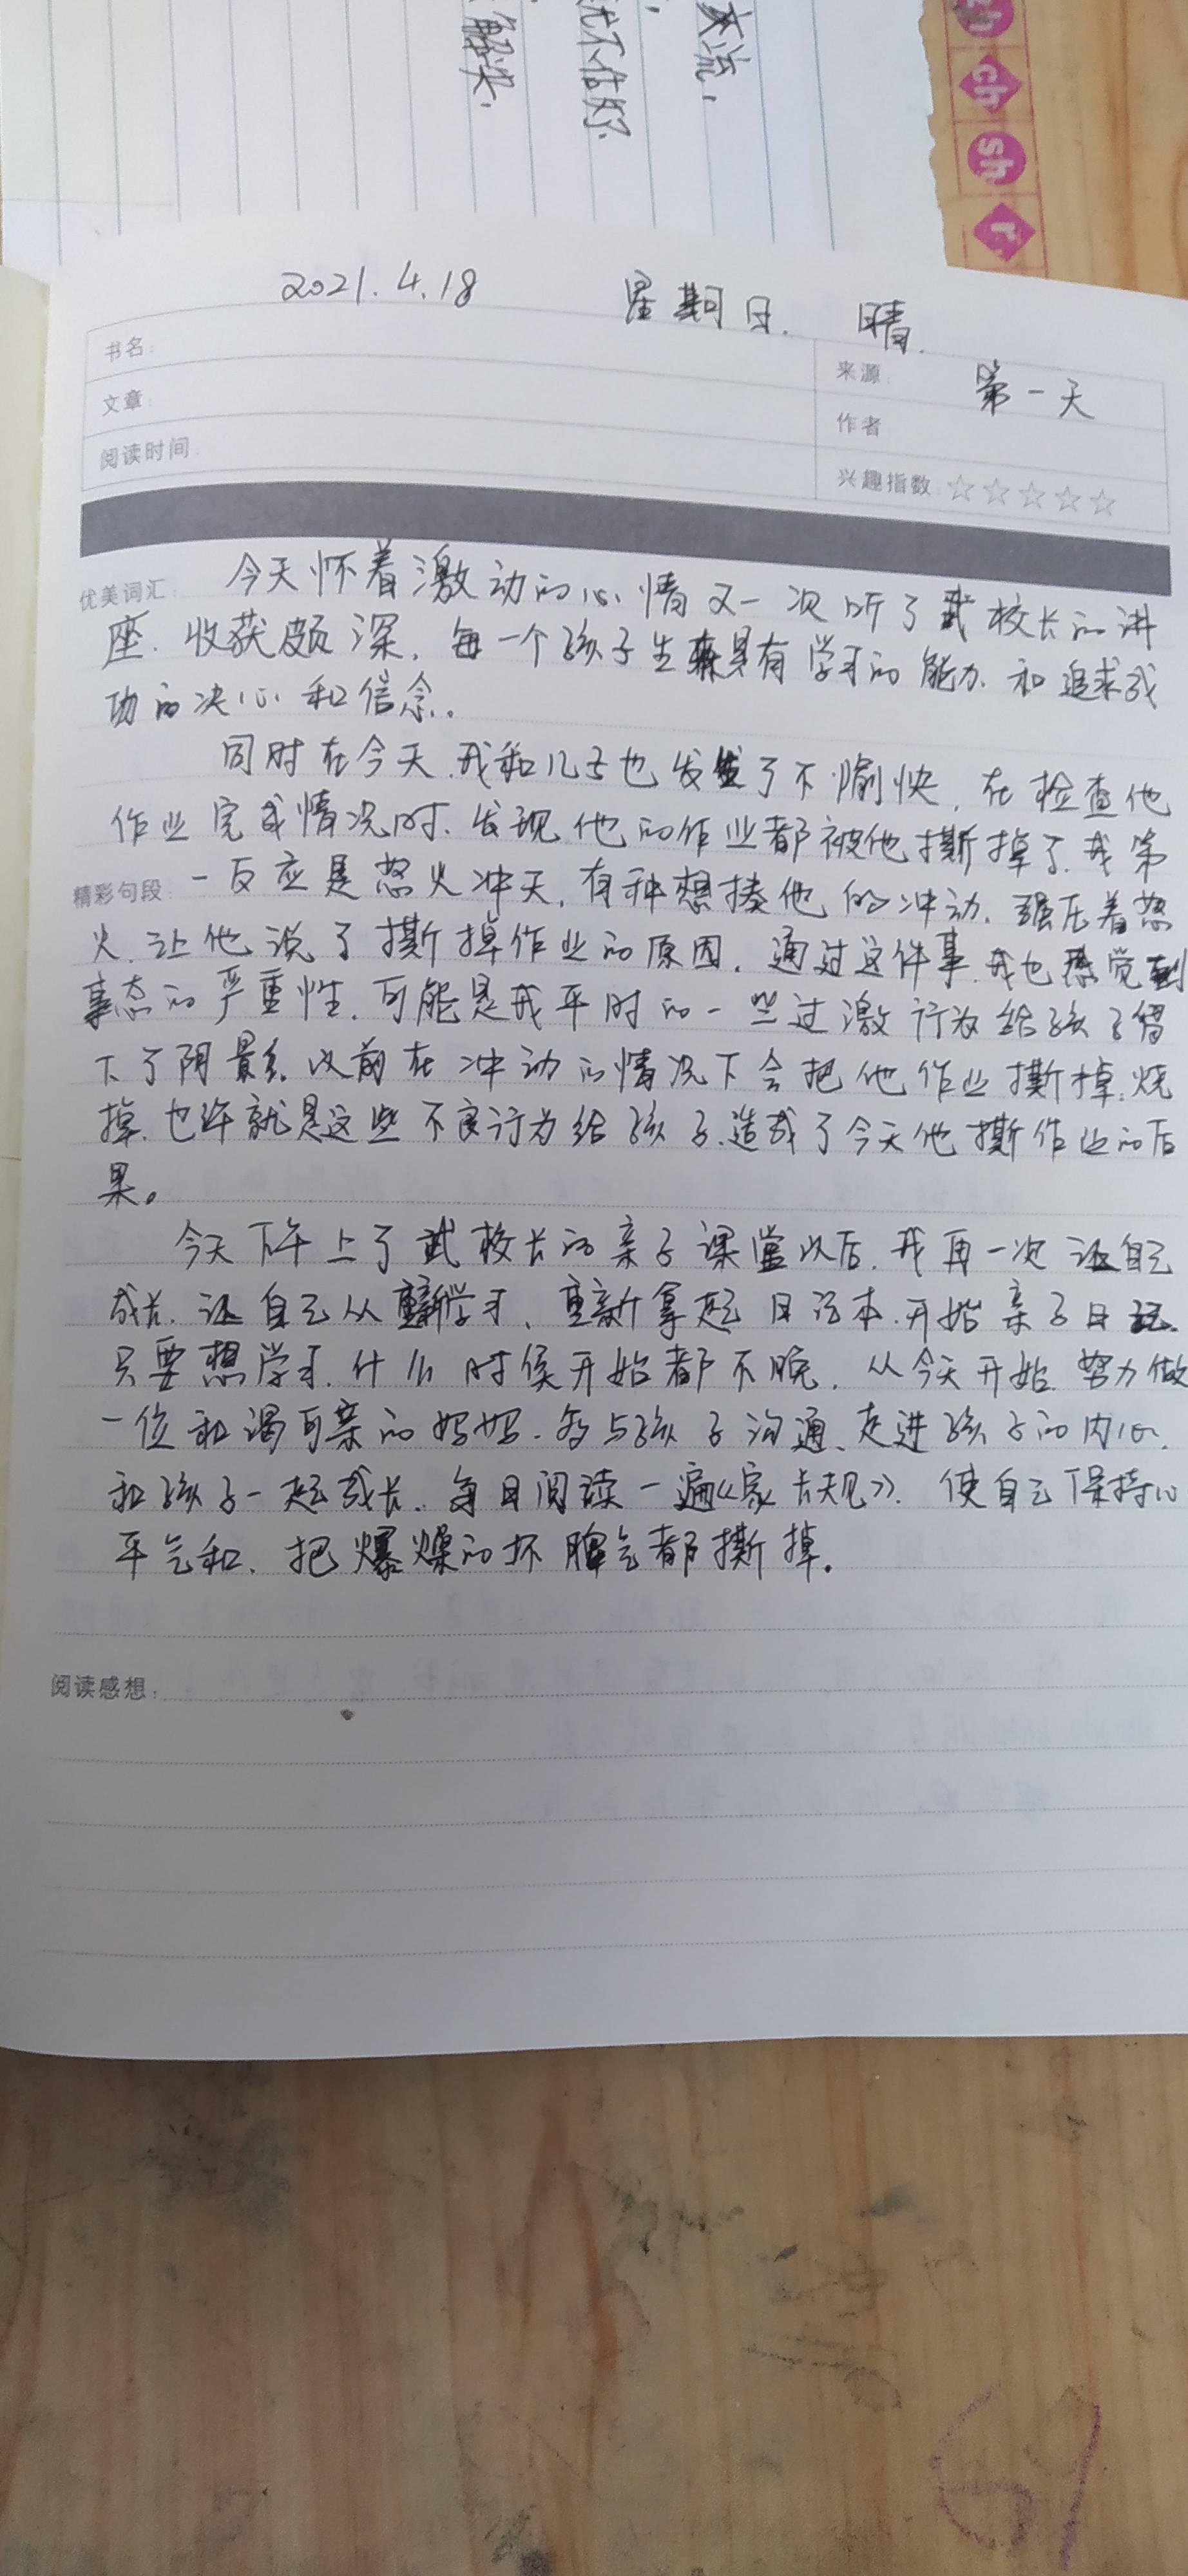 zh
ch
sh
r
交流,
就不信好了.
解决,
2021.4.18 星期日. 晴.
书名:
来源: 第一天
文章:
作者
阅读时间:
兴趣指数 ☆☆☆☆☆
优美词汇:
今天怀着激动的心情又一次听了武校长的讲
座.收获颇深.每一个孩子生来具有学习的能力.和追求成
功的决心和信念.
同时在今天.我和儿子也发生了不愉快.在检查他
作业完成情况时.发现他的作业都被他撕掉了.我第
精彩句段:
一反应是怒火冲天.有种想揍他的冲动.强压着怒
火.让他说了撕掉作业的原因.通过这件事.我也感觉到
事态的严重性.可能是我平时的一些过激行为给孩子留
下了阴影.以前在冲动的情况下会把他作业撕掉.烧
掉.也许就是这些不良行为给孩子.造成了今天他撕作业的后
果。
今天下午上了武校长的亲子课堂以后.我再一次让自己
成长.让自己从重新学习、重新拿起日记本.开始亲子日记.
只要想学习.什么时侯开始都不晚.从今天开始.努力做
一位和谒可亲的妈妈.多与孩子沟通、走进孩子的内心.
和孩子一起成长.每日阅读一遍《家长规》.使自己保持心
平气和.把爆燥的坏脾气都撕掉.
阅读感想: